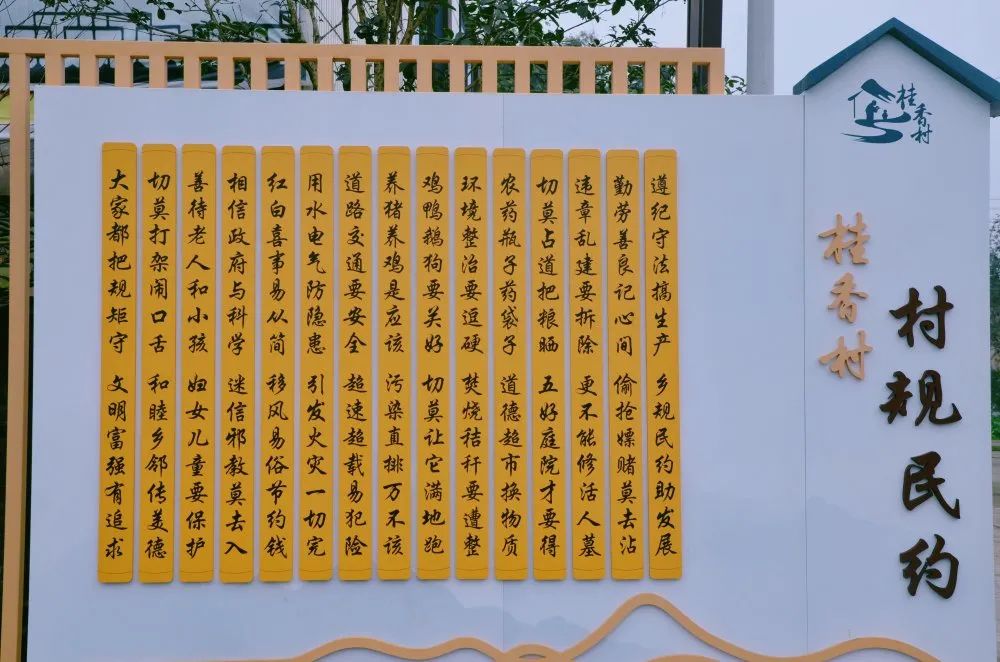 桂香村
桂香村
村规民约
遵纪守法搞生产 乡规民约助发展
勤劳善良记心间 偷抢嫖赌莫去沾
违章乱建要拆除 更不能修活人墓
切莫占道把粮晒 五好庭院才要得
农药瓶子药袋子 道德超市换物质
环境整治要逗硬 焚烧秸秆要遭整
鸡鸭鹅狗要关好 切莫让它满地跑
养猪养鸡是应该 污染直排万不该
道路交通要安全 超速超载易犯险
用水电气防隐患 引发火灾一切完
红白喜事易从简 移风易俗节约钱
相信政府与科学 迷信邪教莫去入
善待老人和小孩 妇女儿童要保护
切莫打架闹口舌 和睦乡邻传美德
大家都把规矩守 文明富强有追求